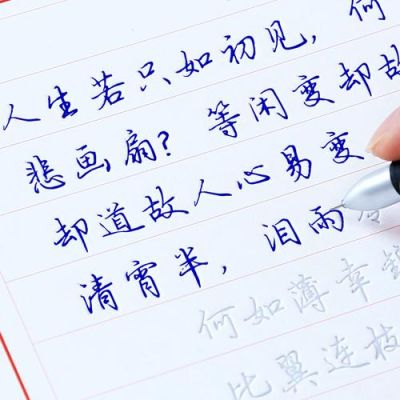 人生若只如初见，何
悲画扇？等闲变却故
却道故人心易变
清宵半，泪雨
何如薄幸
比翼连枝